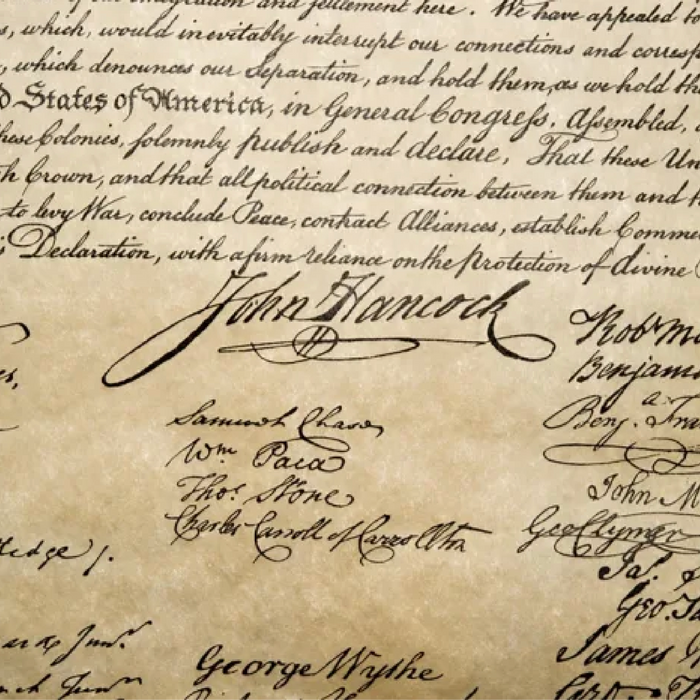 migration and settlement here. We have appealed to
s, which, would inevitably interrupt our connections and corresp
, which denounces our Separation, and hold them, as we hold th
d States of America, in General Congress, Assembled,
hese Colonies, solemnly publish and declare, That these Un
h Crown, and that all political connection between them and t
to levy War, conclude Peace, contract Alliances, establish Comme
s Declaration, with a firm reliance on the protection of divine
John Hancock
Samuel Chase
Wm Paca
Thos. Stone
Charles Carroll of Carrollton
George Wythe
Robt Mo
Benjami
Benj. Fra
John M
Geo Clymer
Jas.
Geo. Ta
James